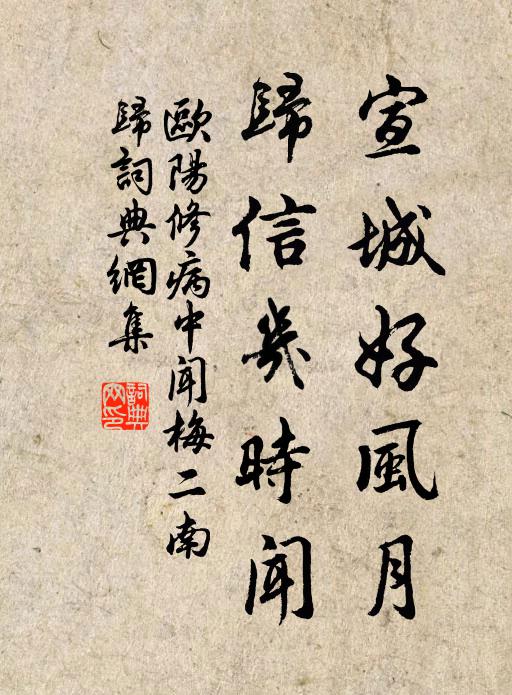 宣城好風月
歸信幾時聞
歐陽修病中聞梅二南
歸詞典網集
詞典網印